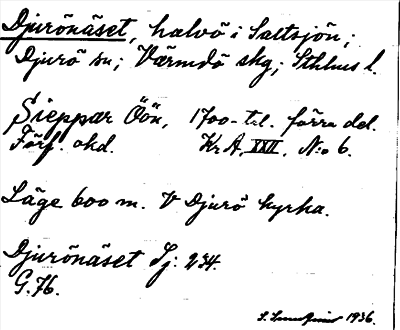 Djurönäset, halvö i Saltsjön;
Djurö sn; Värmdö skg; Sthlms l.
Sieppar Öön, 1700-t:l. förra del.
Förf. okd. Kr. A. XXII, N:o 6.
Läge 600 m. V Djurö kyrka.
Djurönäset Sj: 234.
G. 76.
S. 1936.